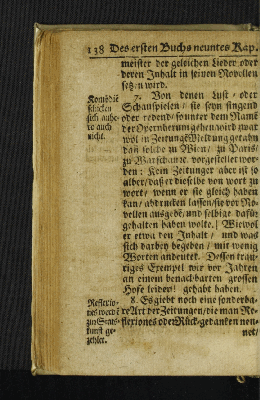 138 Des ersten Buchs neuntes Kap.
meister der gleichen Lieder oder
deren Inhalt in seinen Novellen
setzen wird.
Komödie
schicken
sich auch
nicht.
7. Von denen Lust- oder
Schauspielen / sie seyn singend
oder redend / so unter dem Namē
der Opern herum gehen wird zwar
wol in Zeitungē Meldung gethan
daß solche zu Wien / zu Paris /
zu Warschau ꝛc. vorgestellet wor-
den: Kein Zeitunger aber ist so
alber / daß er dieselbe von wort zu
wort / wenn er sie gleich haben
kan / abdrucken lassen / sie vor No-
vellen ausgebē / und selbige dafür
gehalten haben wolte. Wiewol
er etwa den Inhalt / und was
sich darbey begeben / mit wenig
Worten andeutet. Dessen trau-
riges Exempel wir vor Jahren
an einem benachbarten grossen
Hofe leider! gehabt haben.
Reflexio-
nes werdē
zur Stats-
kunst ge-
zehlet.
8. Es giebt noch eine sonderba-
re Art der Zeitungen / die man Re-
flexiones oder Rück-gedanken nen-
net /